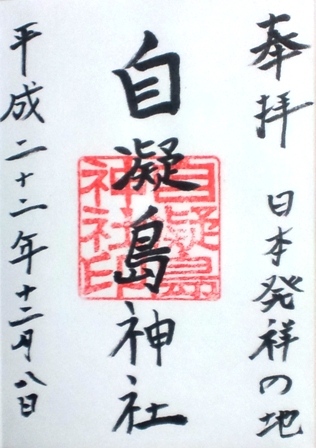 奉拝 日本発祥の地
自凝島神社
自凝島神社印
平成二十二年十二月八日